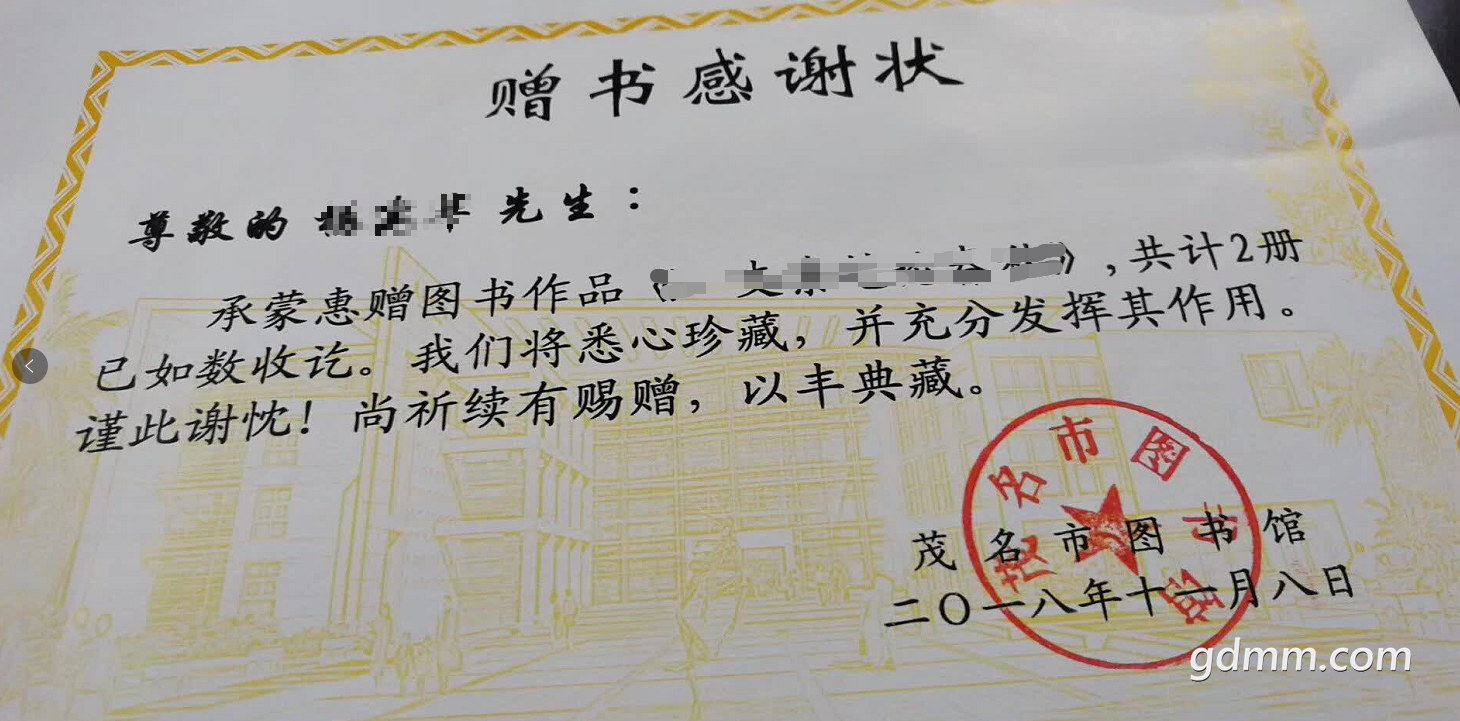 赠书感谢状
尊敬的 先生：
承蒙惠赠图书作品《 》，共计2册
已如数收讫。我们将悉心珍藏，并充分发挥其作用。
谨此谢忱！尚祈续有赐赠，以丰典藏。
茂名市图书馆
茂名市图书馆
二〇一八年十一月八日
gdmm.com